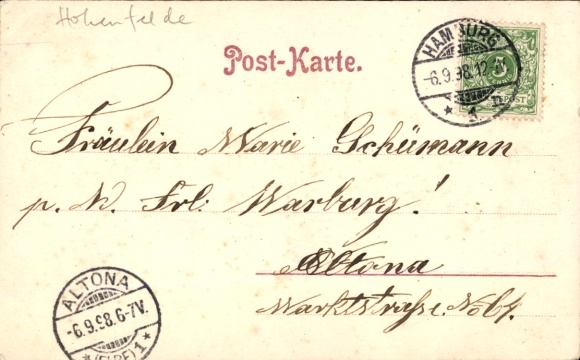 Hohenfelde
Post-Karte.
HAMBURG
-6.9.98.12-1N
* 1 n.
Fräulein Marie Schümann
p. N. Frl. Warburg!
Altona
Marktstrasse. No 64.
ALTONA
-6.9.98.6-7N.
*(ELBE)1*